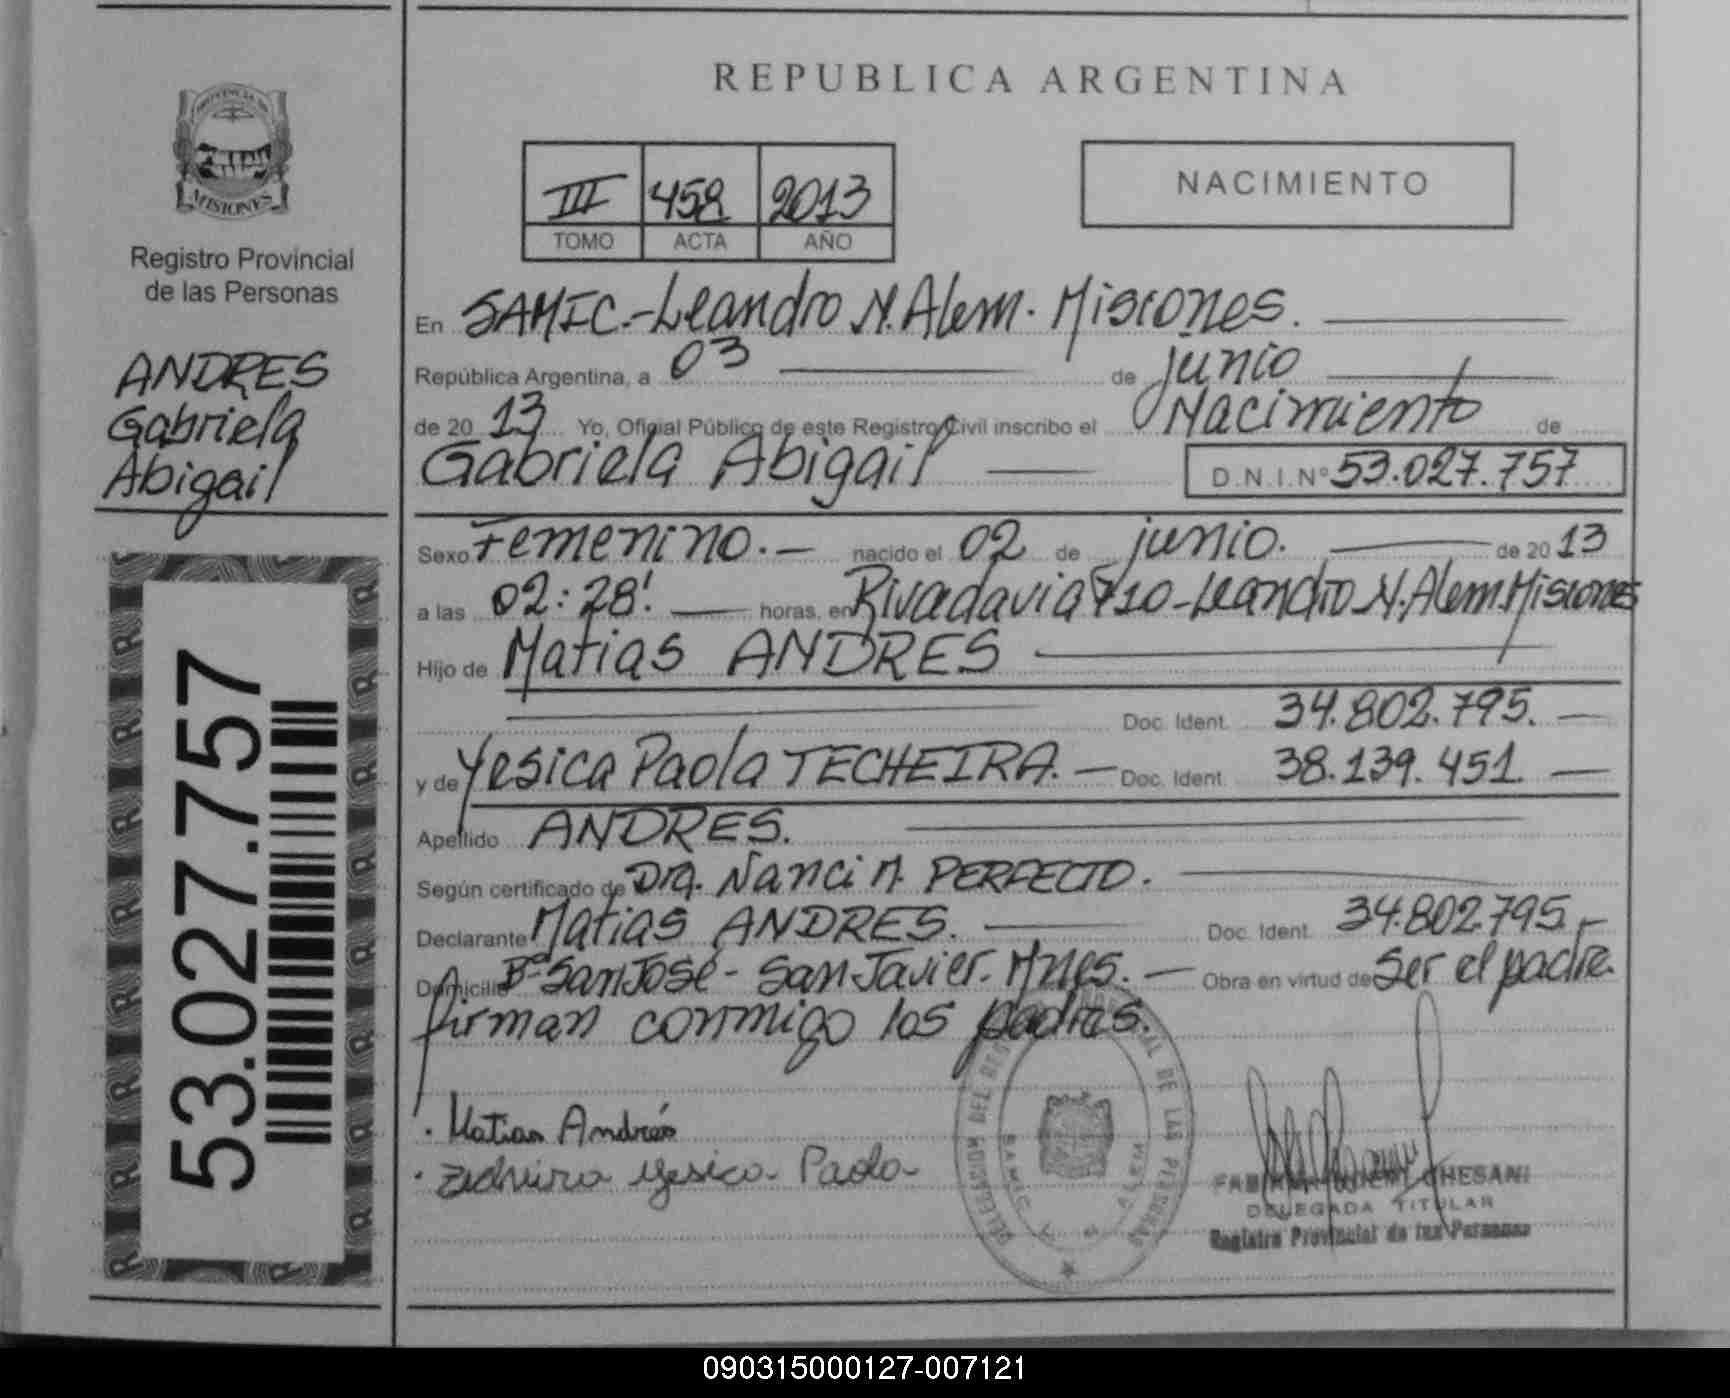 REPUBLICA ARGENTINA
PROVINCIA DE
MISIONES
Registro Provincial
de las Personas
ANDRES
Gabriela
Abigail
53.027.757
III 458 2013
TOMO ACTA AÑO
NACIMIENTO
En SAMIC.-Leandro N. Alem. Misiones.
República Argentina, a 03 de junio
de 20 13 Yo, Oficial Público de este Registro Civil inscribo el Nacimiento de
Gabriela Abigail D.N.I.Nº 53.027.757
Sexo Femenino.- nacido el 02 de junio. de 20 13
a las 02:28'. horas, en Rivadavia 710-Leandro N. Alem. Misiones
Hijo de Matias ANDRES
Doc. Ident. 34.802.795.
y de Yesica Paola TECHEIRA. - Doc. Ident. 38.139.451
Apellido ANDRES.
Según certificado de Dra. Nanci A. PERFECTO.
Declarante Matias ANDRES. Doc. Ident. 34.802.795.-
Domicilio Bº San José - San Javier. Mnes. - Obra en virtud de Ser el padre.
firman conmigo los padres.
. Matias Andrés
Yesica Paola
DE LAS PERSONAS
SAMIC
ALEM
CHESANI
DELEGADA TITULAR
Registro Provincial de las Personas
090315000127-007121